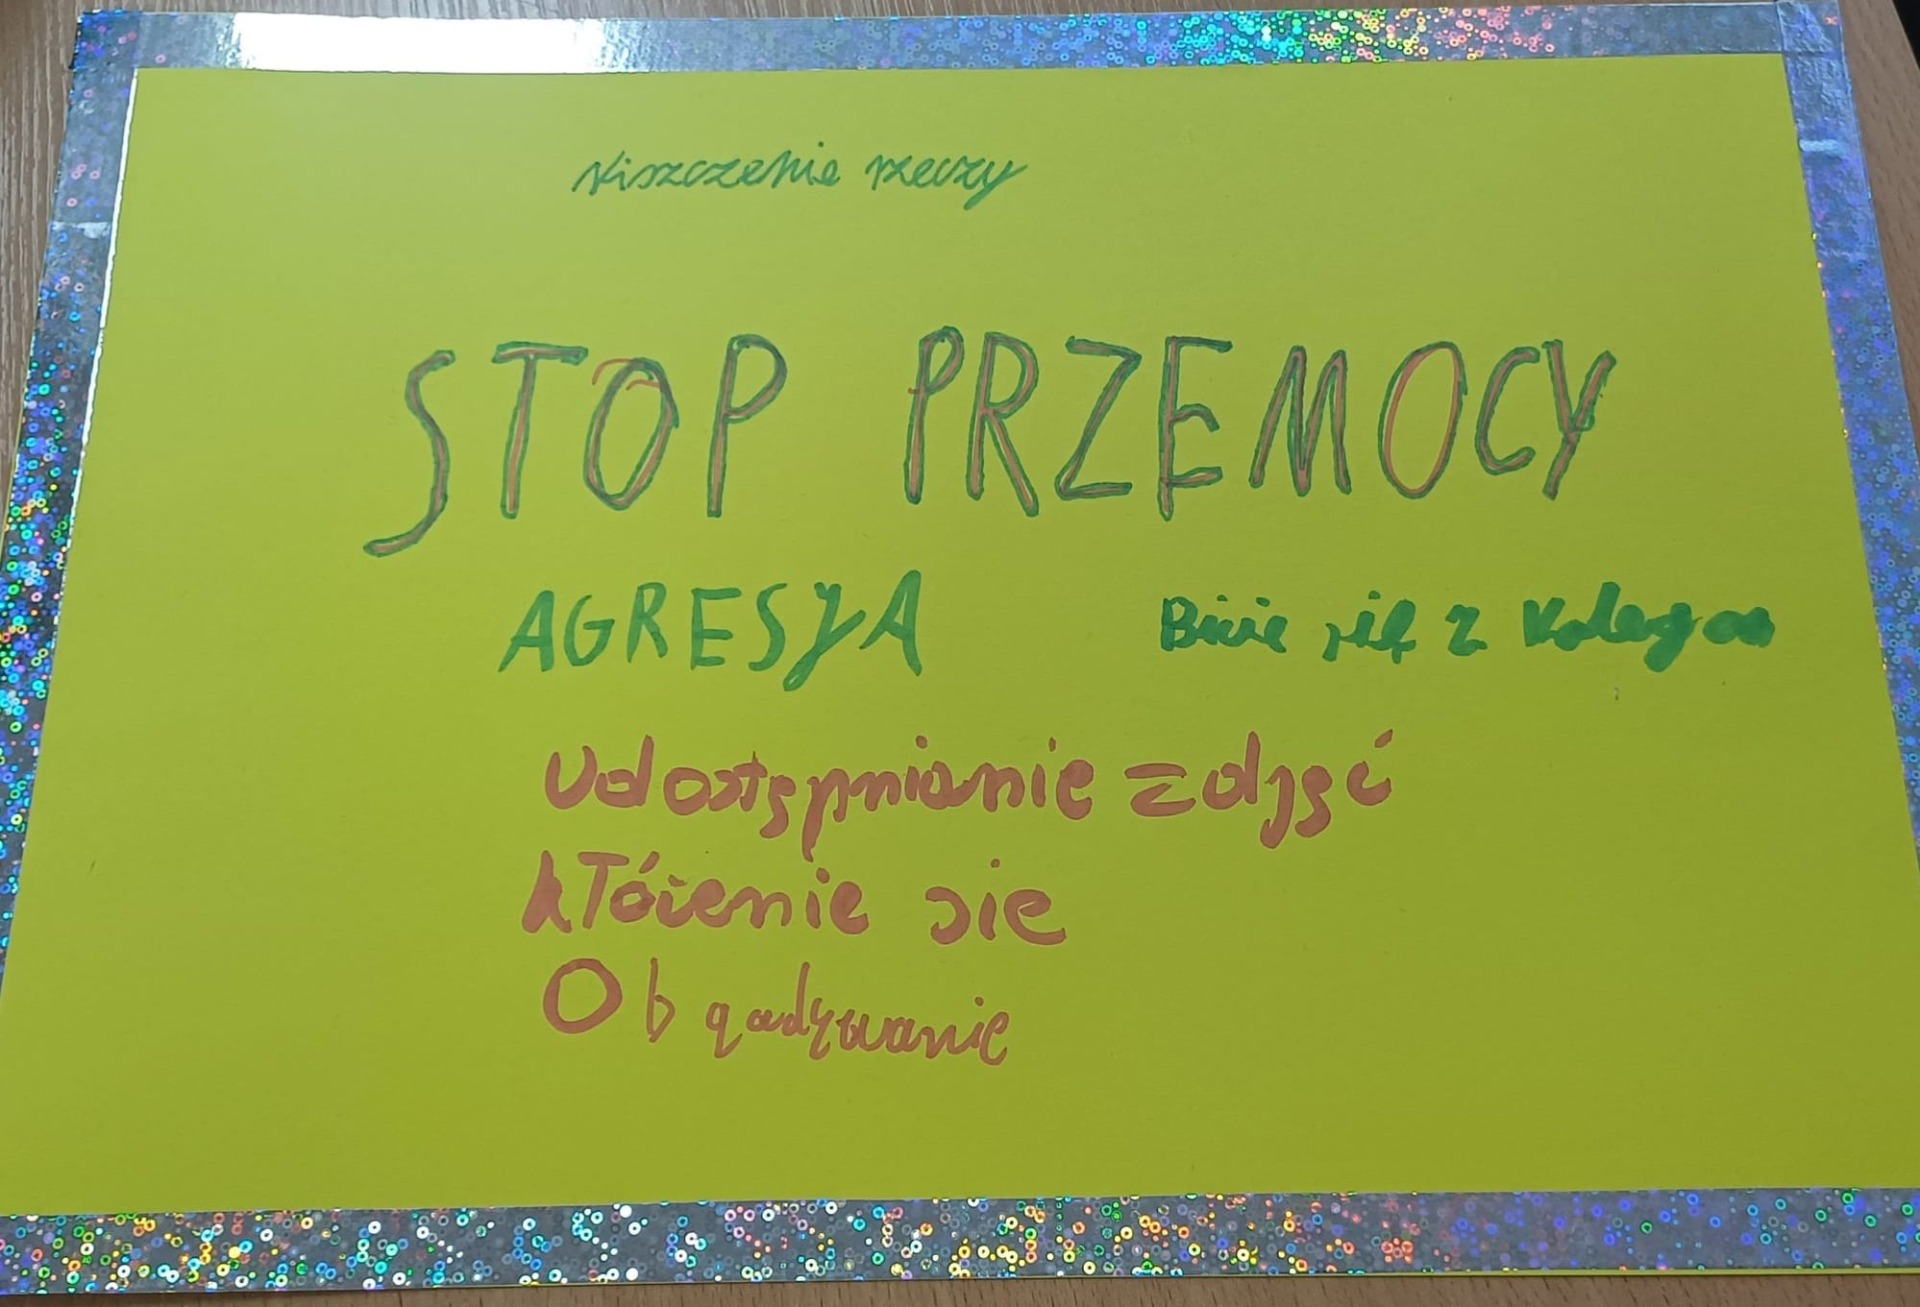 Niszczenie rzeczy
STOP PRZEMOCY
AGRESJA Bicie się z Kolegą
Udostępnianie zdjęć
kTócenie sie
Obgadywanie